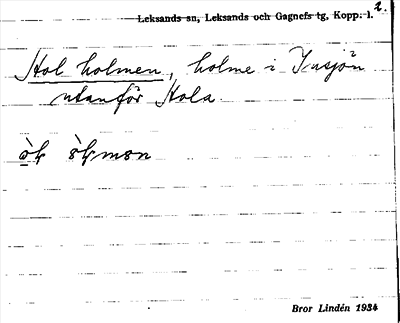 2.
Leksands sn, Leksands och Gagnefs tg, Kopp. l.
Hol holmen, holme i Insjön
utanför Hola.
Bror Lindén 1934